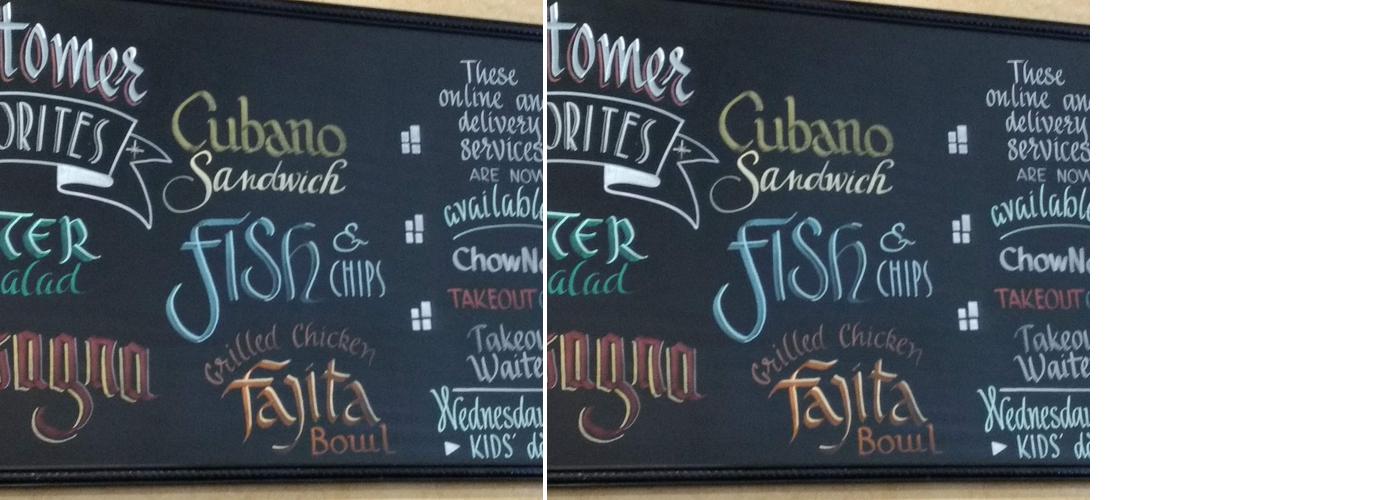 tomer
ORITES +
TER
alad
sagna
Cubano
Sandwich
Fish &
CHIPS
Grilled Chicken
Fajita
Bowl
These
online an
delivery
services
ARE NOW
available
ChowN
TAKEOUT
Takeou
Waite
Wednesday
KIDS'
tomer
ORITES +
TER
alad
sagna
Cubano
Sandwich
Fish &
CHIPS
Grilled Chicken
Fajita
Bowl
These
online an
delivery
services
ARE NOW
available
ChowN
TAKEOUT
Takeou
Waite
Wednesday
KIDS'